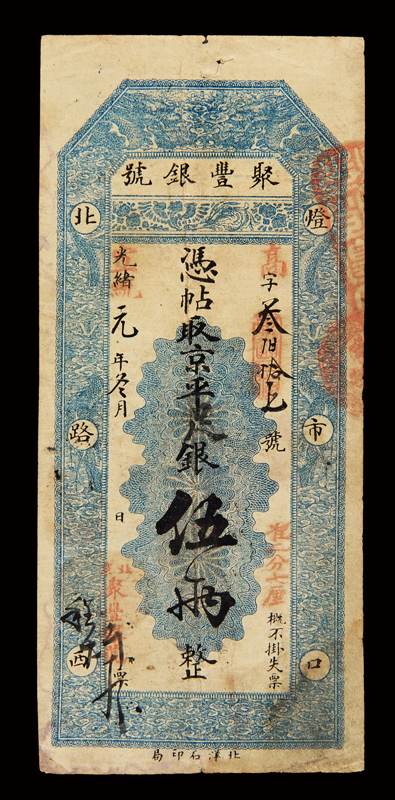 聚豐銀號
燈市口
北路西
高
字叁佰拾號
概不掛失票
二分七厘
憑帖取京平足銀伍兩整
光緒元年叁月 日票
宣統
聚豐
北洋石印局